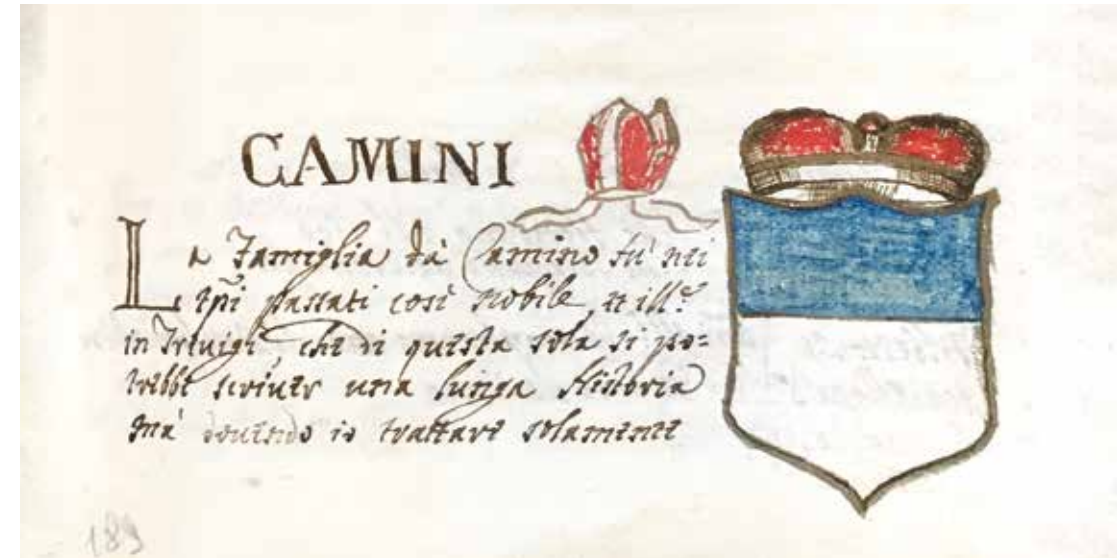 CAMINI
La Famiglia da Camino fù nei
tp̃i passati così nobile, et ill.e
in Trivigi, che di questa sola si po=
trebbe scriver una lunga Historia
mà dovendo io trattare solamente
189